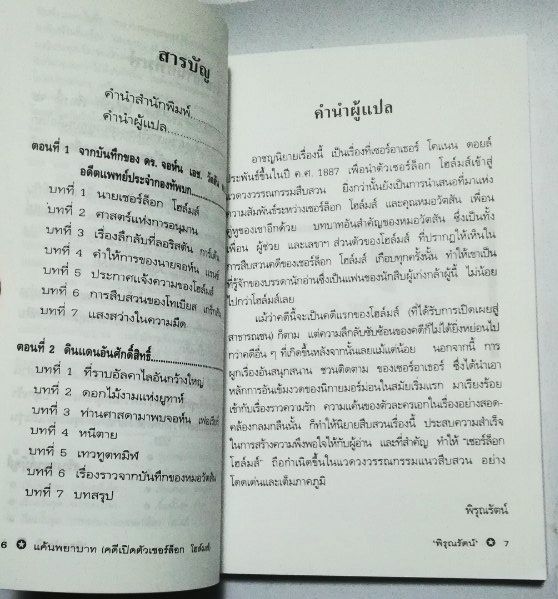 สารบัญ
คำนำสำนักพิมพ์
คำนำผู้แปล
ตอนที่ 1 จากบันทึกของ ดร. จอห์น เอช. วัตสัน
อดีตแพทย์ประจำกองทัพบก
บทที่ 1 นายเชอร์ล็อก โฮล์มส์
บทที่ 2 ศาสตร์แห่งการอนุมาน
บทที่ 3 เรื่องลึกลับที่ลอริสตัน การ์เดน
บทที่ 4 คำให้การของนายจอห์น แรนซ์
บทที่ 5 ประกาศแจ้งความของโฮล์มส์
บทที่ 6 การสืบสวนของโทเบียส เกร็กสัน
บทที่ 7 แสงสว่างในความมืด
ตอนที่ 2 ดินแดนอันศักดิ์สิทธิ์
บทที่ 1 ที่ราบอัลคาไลอันกว้างใหญ่
บทที่ 2 ดอกไม้งามแห่งยูทาห์
บทที่ 3 ท่านศาสดามาพบจอห์น เฟอเรียร์
บทที่ 4 หนีตาย
บทที่ 5 เทวทูตทมิฬ
บทที่ 6 เรื่องราวจากบันทึกของหมอวัตสัน
บทที่ 7 บทสรุป
6 ✪ แค้นพยาบาท (คดีเปิดตัวเชอร์ล็อก โฮล์มส์)
คำนำผู้แปล
อาชญนิยายเรื่องนี้ เป็นเรื่องที่เซอร์อาเธอร์ โคแนน ดอยล์
ประพันธ์ขึ้นในปี ค.ศ. 1887 เพื่อนำตัวเชอร์ล็อก โฮล์มส์เข้าสู่
แวดวงวรรณกรรมสืบสวน ยิ่งกว่านั้นยังเป็นการนำเสนอที่มาแห่ง
ความสัมพันธ์ระหว่างเชอร์ล็อก โฮล์มส์ และคุณหมอวัตสัน เพื่อน
คู่หูของเขาอีกด้วย บทบาทอันสำคัญของหมอวัตสัน ซึ่งเป็นทั้ง
เพื่อน ผู้ช่วย และเลขาฯ ส่วนตัวของโฮล์มส์ ที่ปรากฏให้เห็นใน
การสืบสวนคดีของเชอร์ล็อก โฮล์มส์ เกือบทุกครั้งนั้น ทำให้เขาเป็น
ที่รู้จักของบรรดานักอ่านซึ่งเป็นแฟนของนักสืบผู้เก่งกล้าผู้นี้ ไม่น้อย
ไปกว่าโฮล์มส์เลย
แม้ว่าคดีนี้จะเป็นคดีแรกของโฮล์มส์ (ที่ได้รับการเปิดเผยสู่
สาธารณชน) ก็ตาม แต่ความลึกลับซับซ้อนของคดีก็ไม่ได้ยิ่งหย่อนไป
กว่าคดีอื่น ๆ ที่เกิดขึ้นหลังจากนั้นเลยแม้แต่น้อย นอกจากนี้ การ
ผูกเรื่องอันสนุกสนาน ชวนติดตาม ของเซอร์อาเธอร์ ซึ่งได้นำเอา
หลักการอันเข้มงวดของนิกายมอร์มอนในสมัยเริ่มแรก มาเรียงร้อย
เข้ากับเรื่องราวความรัก ความแค้นของตัวละครเอกในเรื่องอย่างสอด-
คล้องกลมกลืนนั้น ก็ทำให้นิยายสืบสวนเรื่องนี้ ประสบความสำเร็จ
ในการสร้างความพึงพอใจให้กับผู้อ่าน และที่สำคัญ ทำให้ "เชอร์ล็อก
โฮล์มส์" ถือกำเนิดขึ้นในแวดวงวรรณกรรมแนวสืบสวน อย่าง
โดดเด่นและเต็มภาคภูมิ
พิรุณรัตน์
"พิรุณรัตน์" ✪ 7